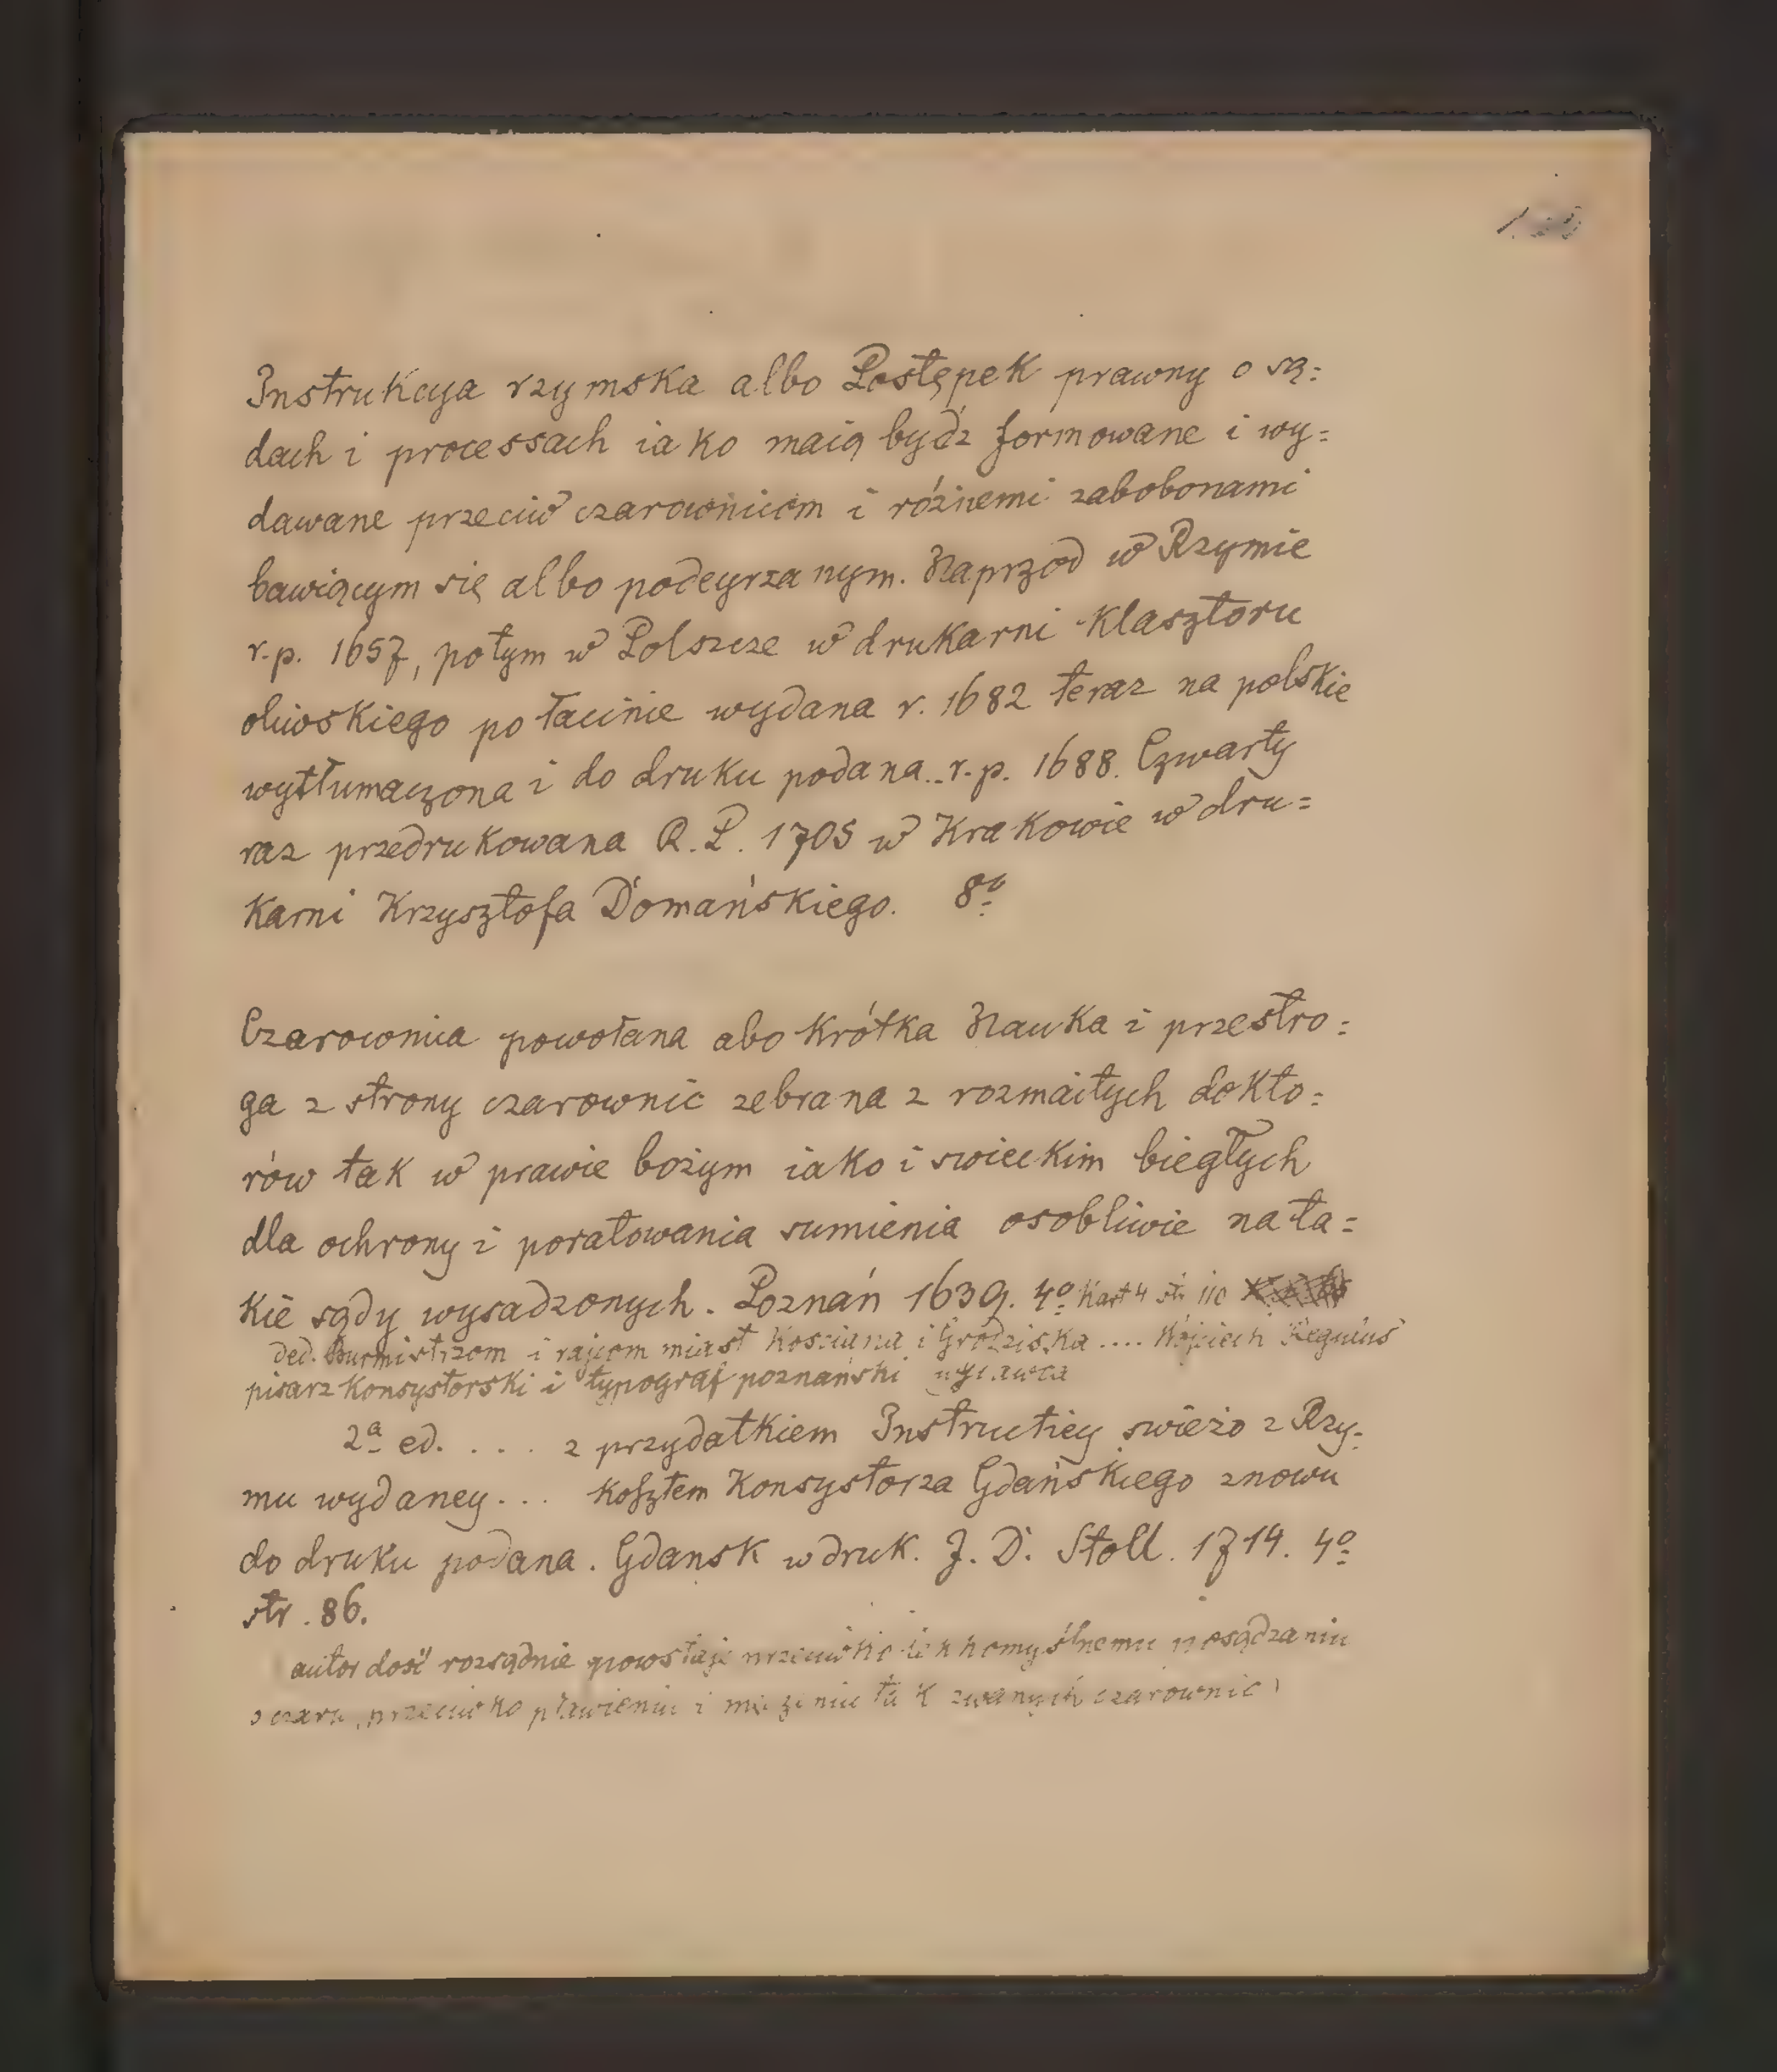 Instrukcya rzymska albo Postępek prawny o są:
dach i processach iako maią bydź formowane i wy:
dawane przeciw czarownicom i różnemi zabobonami
bawiącym się albo podeyrzanym. Naprzod w Rzymie
r.p. 1657, potym w Polszcze w drukarni klasztoru
oliwskiego po łacinie wydana r. 1682 teraz na polskie
wytłumaczona i do druku podana.. r.p. 1688. Czwarty
raz przedrukowana R.P. 1705 w Krakowie w dru:
karni Krzysztofa Domańskiego. 8º
Czarownica powołana abo krótka Nauka i przestro:
ga z strony czarownic zebrana z rozmaitych dokto:
rów tak w prawie bożym iako i swieckim biegłych
dla ochrony i poratowania sumienia osobliwie na ta:
kie sądy wysadzonych. Poznań 1639. 4º kart 4 str
ded. Burmistrzom i rajcom miast Kosciana i Grodziska .... Wojciech Regulus
pisarz konsystorski i typograf poznański wydawca
2ª ed. . . . . z przydatkiem Instructiey swieżo z Rzy:
mu wydaney... kosztem Konsystorza Gdańskiego znowu
do druku podana. Gdansk w druk. J. D. Stoll. 1714. 4º
str. 86.
autor dość rozsądnie powstaje przeciwko posądzaniu
o czary, przeciwko pławieniu i męczeniu tak zwanych czarownic